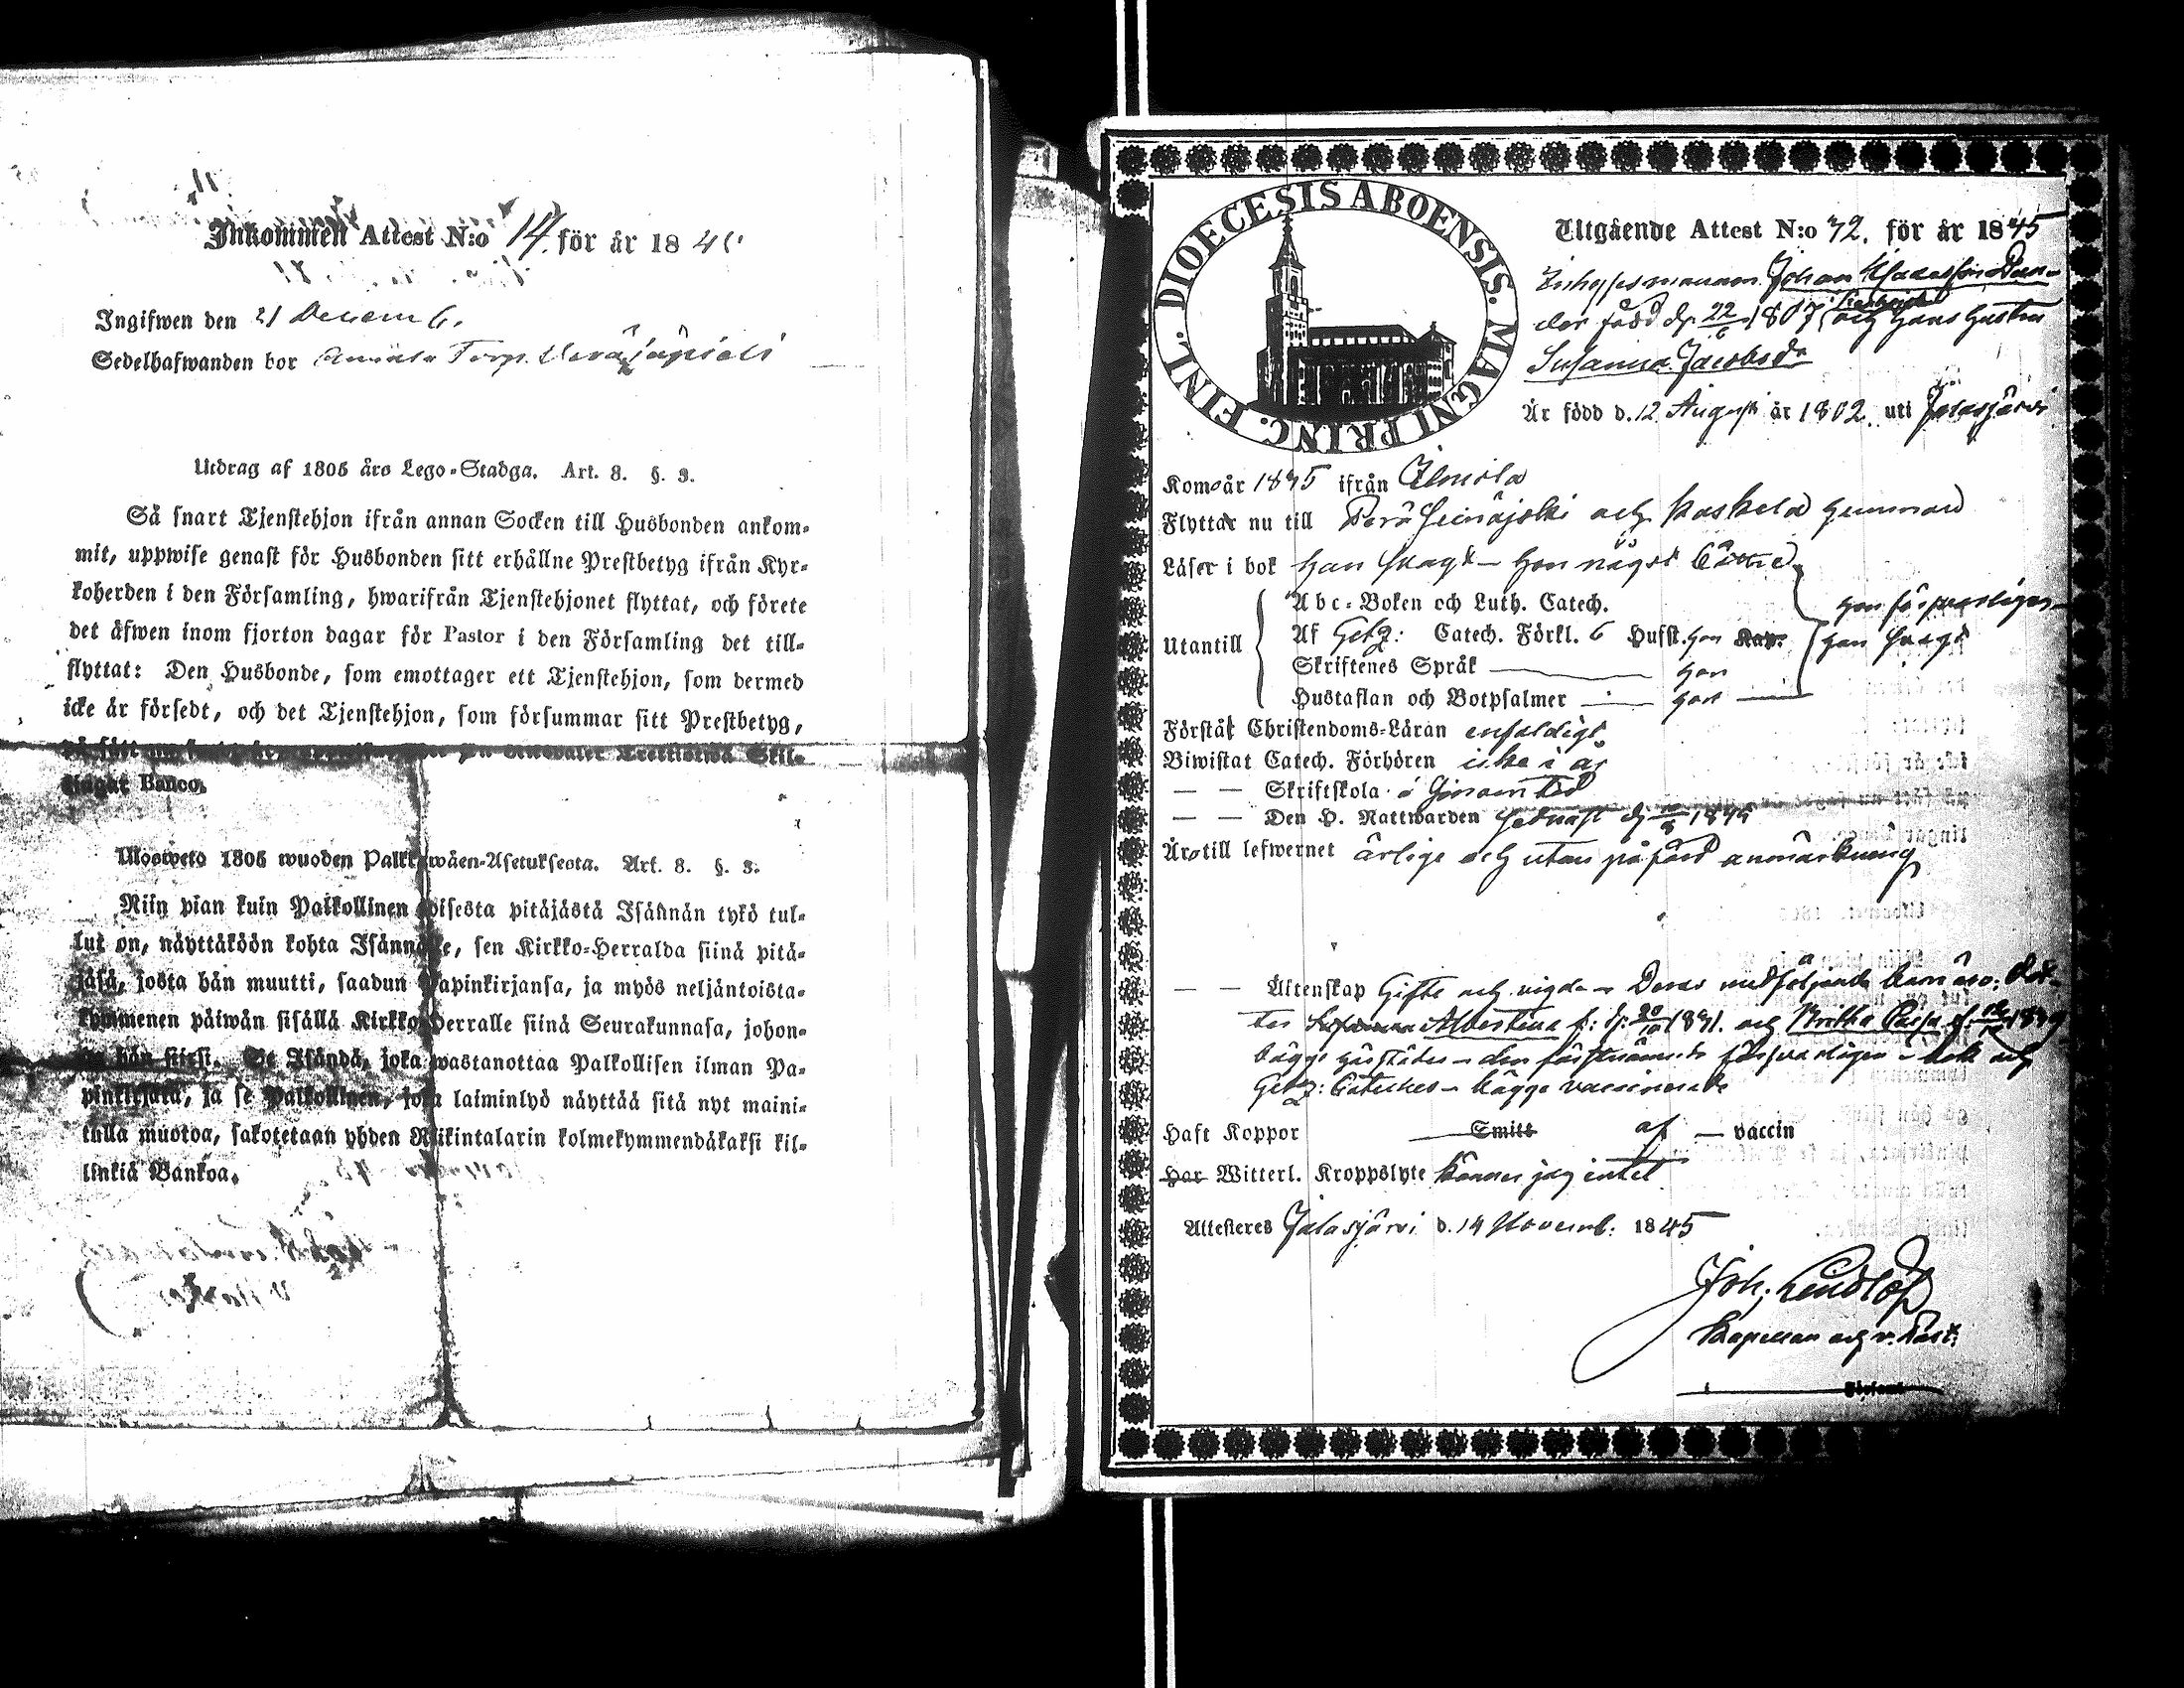 Inkommen Attest N:o 14. för år 18
Ingifwen den 21 Decemb.
Sedelhafwanden bor Torp.
Utdrag af 1805 års Lego-Stadga. Art. 8. §. 3.
Så snart Tjenstehjon ifrån annan Socken till Husbonden ankom-
mit, uppwise genast för Husbonden sitt erhållne Prestbetyg ifrån Kyr-
koherden i den Församling, hwarifrån Tjenstehjonet flyttat, och förete
det äfwen inom fjorton dagar för Pastor i den Församling det till-
flyttat: Den Husbonde, som emottager ett Tjenstehjon, som dermed
icke är försedt, och det Tjenstehjon, som försummar sitt Prestbetyg,
Skil-
lingar Banco.
Ulosweto 1805 wuoden Palkkawäen-Asetuksesta. Art. 8. §. 3.
Niin pian kuin Palkollinen toisesta pitäjästä Isännän tykö tul-
lut on, näyttäköön kohta Isännälle, sen Kirkko-Herralda siinä pitä-
jäsä, josta hän muutti, saadun Papinkirjansa, ja myös neljäntoista-
kymmenen päiwän sisällä Kirkko-Herralle siinä Seurakunnasa, johon-
ga hän siirsi. Se Isändä, joka wastanottaa Palkollisen ilman Pa-
pinkirjata, ja se Palkollinen, joka laiminlyö näyttää sitä nyt maini-
tulla muotoa, sakotetaan yhden Riikintalarin kolmekymmendäkaksi kil-
linkiä Bankoa.
DIOECESIS ABOENSIS. MAGNI PRINC. FINL.
Utgående Attest N:o 72. för år 1845
Inhysesmannen Johan
der född d. 22/6 1807, och hans hustru
Susanna Jacobsdr
Är född d. 12 Augusti år 1802. uti Jalasjärvi
Kom år 1845 ifrån Ilmola
Flyttar nu till Perä Seinäjoki och Koskela hemman
Läser i bok han svagt – hon något bättre
Abc-Boken och Luth. Catech.
hon försvarligen
Utantill
Af Getz: Catech. Förkl. 6 Hufst. hon
han svagt
Skriftenes Språk — hon
Hustaflan och Botpsalmer — hon
Förstår Christendoms-Läran enfaldigt
Biwistat Catech. Förhören icke i år
— — Skriftskola i sinom tid
— — Den H. Nattwarden sednast d.
Äro till lefwernet ärlige och utan påförd anmärkning
— — Äktenskap Gifte och vigde – Deras medföljande barn äro: dot-
ter Albertina f: d: 20/10 1841. och Britha Caisa
bägge – den förstnämnde försvarligen – bok och
Getz: Cateches – bägge vaccinerade
Haft Koppor — Smitt af — vaccin
Har Witterl. Kroppslyte känner jag intet
Attesteras Jalasjärvi d. 14 Novemb: 1845
Joh: Lindlöf
Kapellan och v. Past:
Församl.